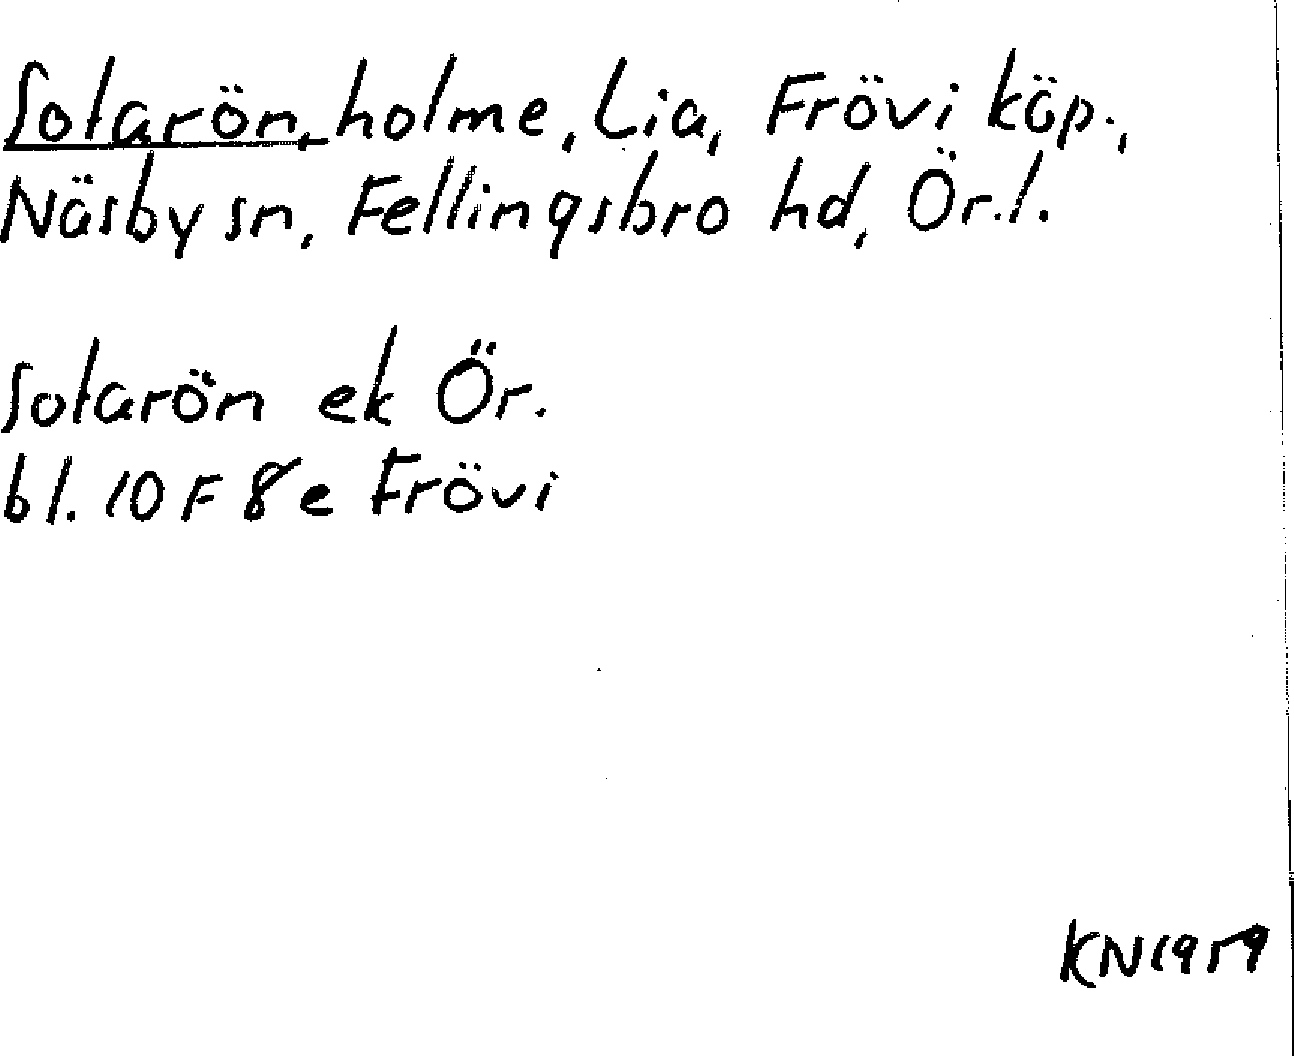 Solarön, holme, Lia, Frövi köp.,
Näsby sn, Fellingsbro hd, Ör.l.
Solarön ek Ör.
bl. 10 F 8e Frövi
KN 1959